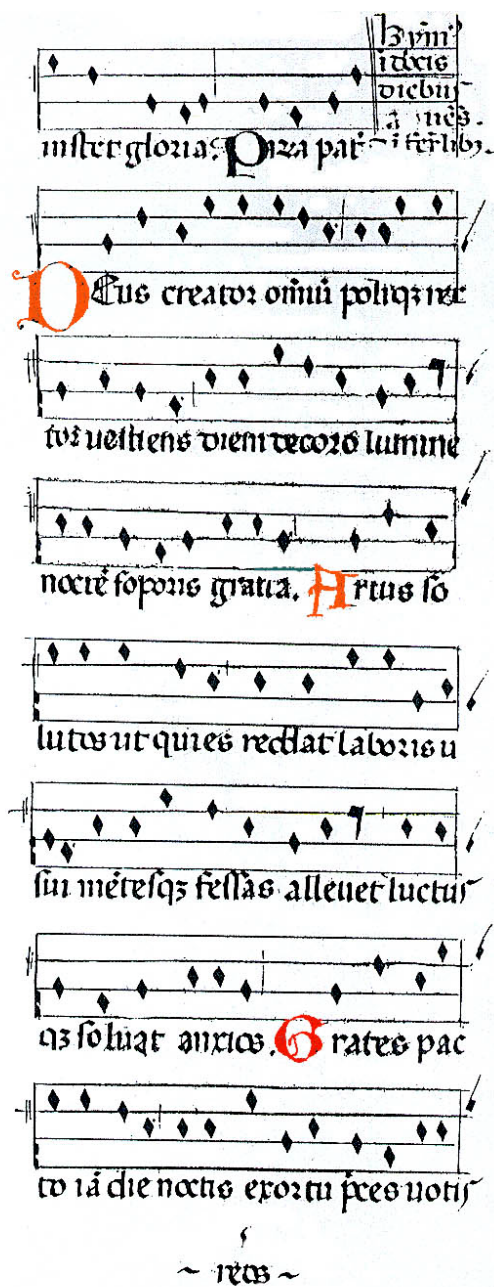 nistret gloria. Priza pat
Deus creator omniū poliqꝫ rec
tor uestiens diem decoro lumine
noctē soporis gratia. Artus so
lutos ut quies reddat laboris u
sui mētesqꝫ fessas alleuet luctus
qꝫ soluat anxios. Grates pac
to iā die noctis exortu p̄ces uotis
~ reos ~